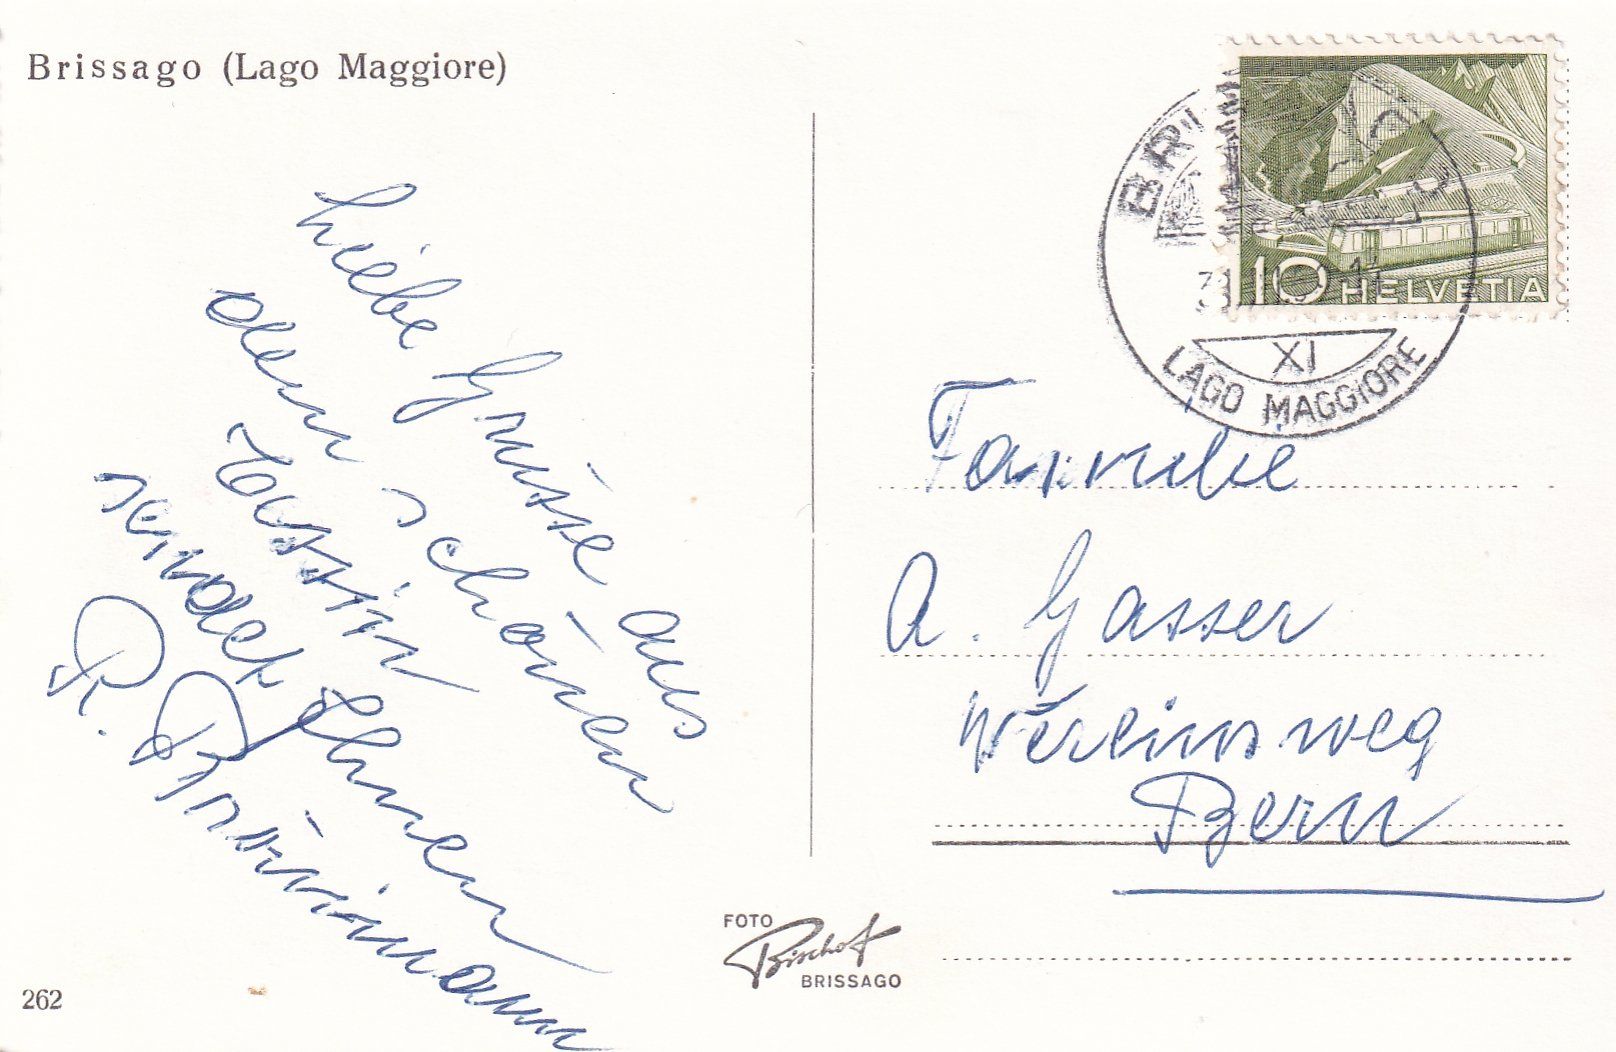 Brissago (Lago Maggiore)
Liebe Grüsse aus
dem schönen
Tessin
sendet Ihnen
R. Brönnimann
262
FOTO
Bischof
BRISSAGO
10 HELVETIA
XI
LAGO MAGGIORE
Familie
A. Gasser
Vereinsweg
Bern